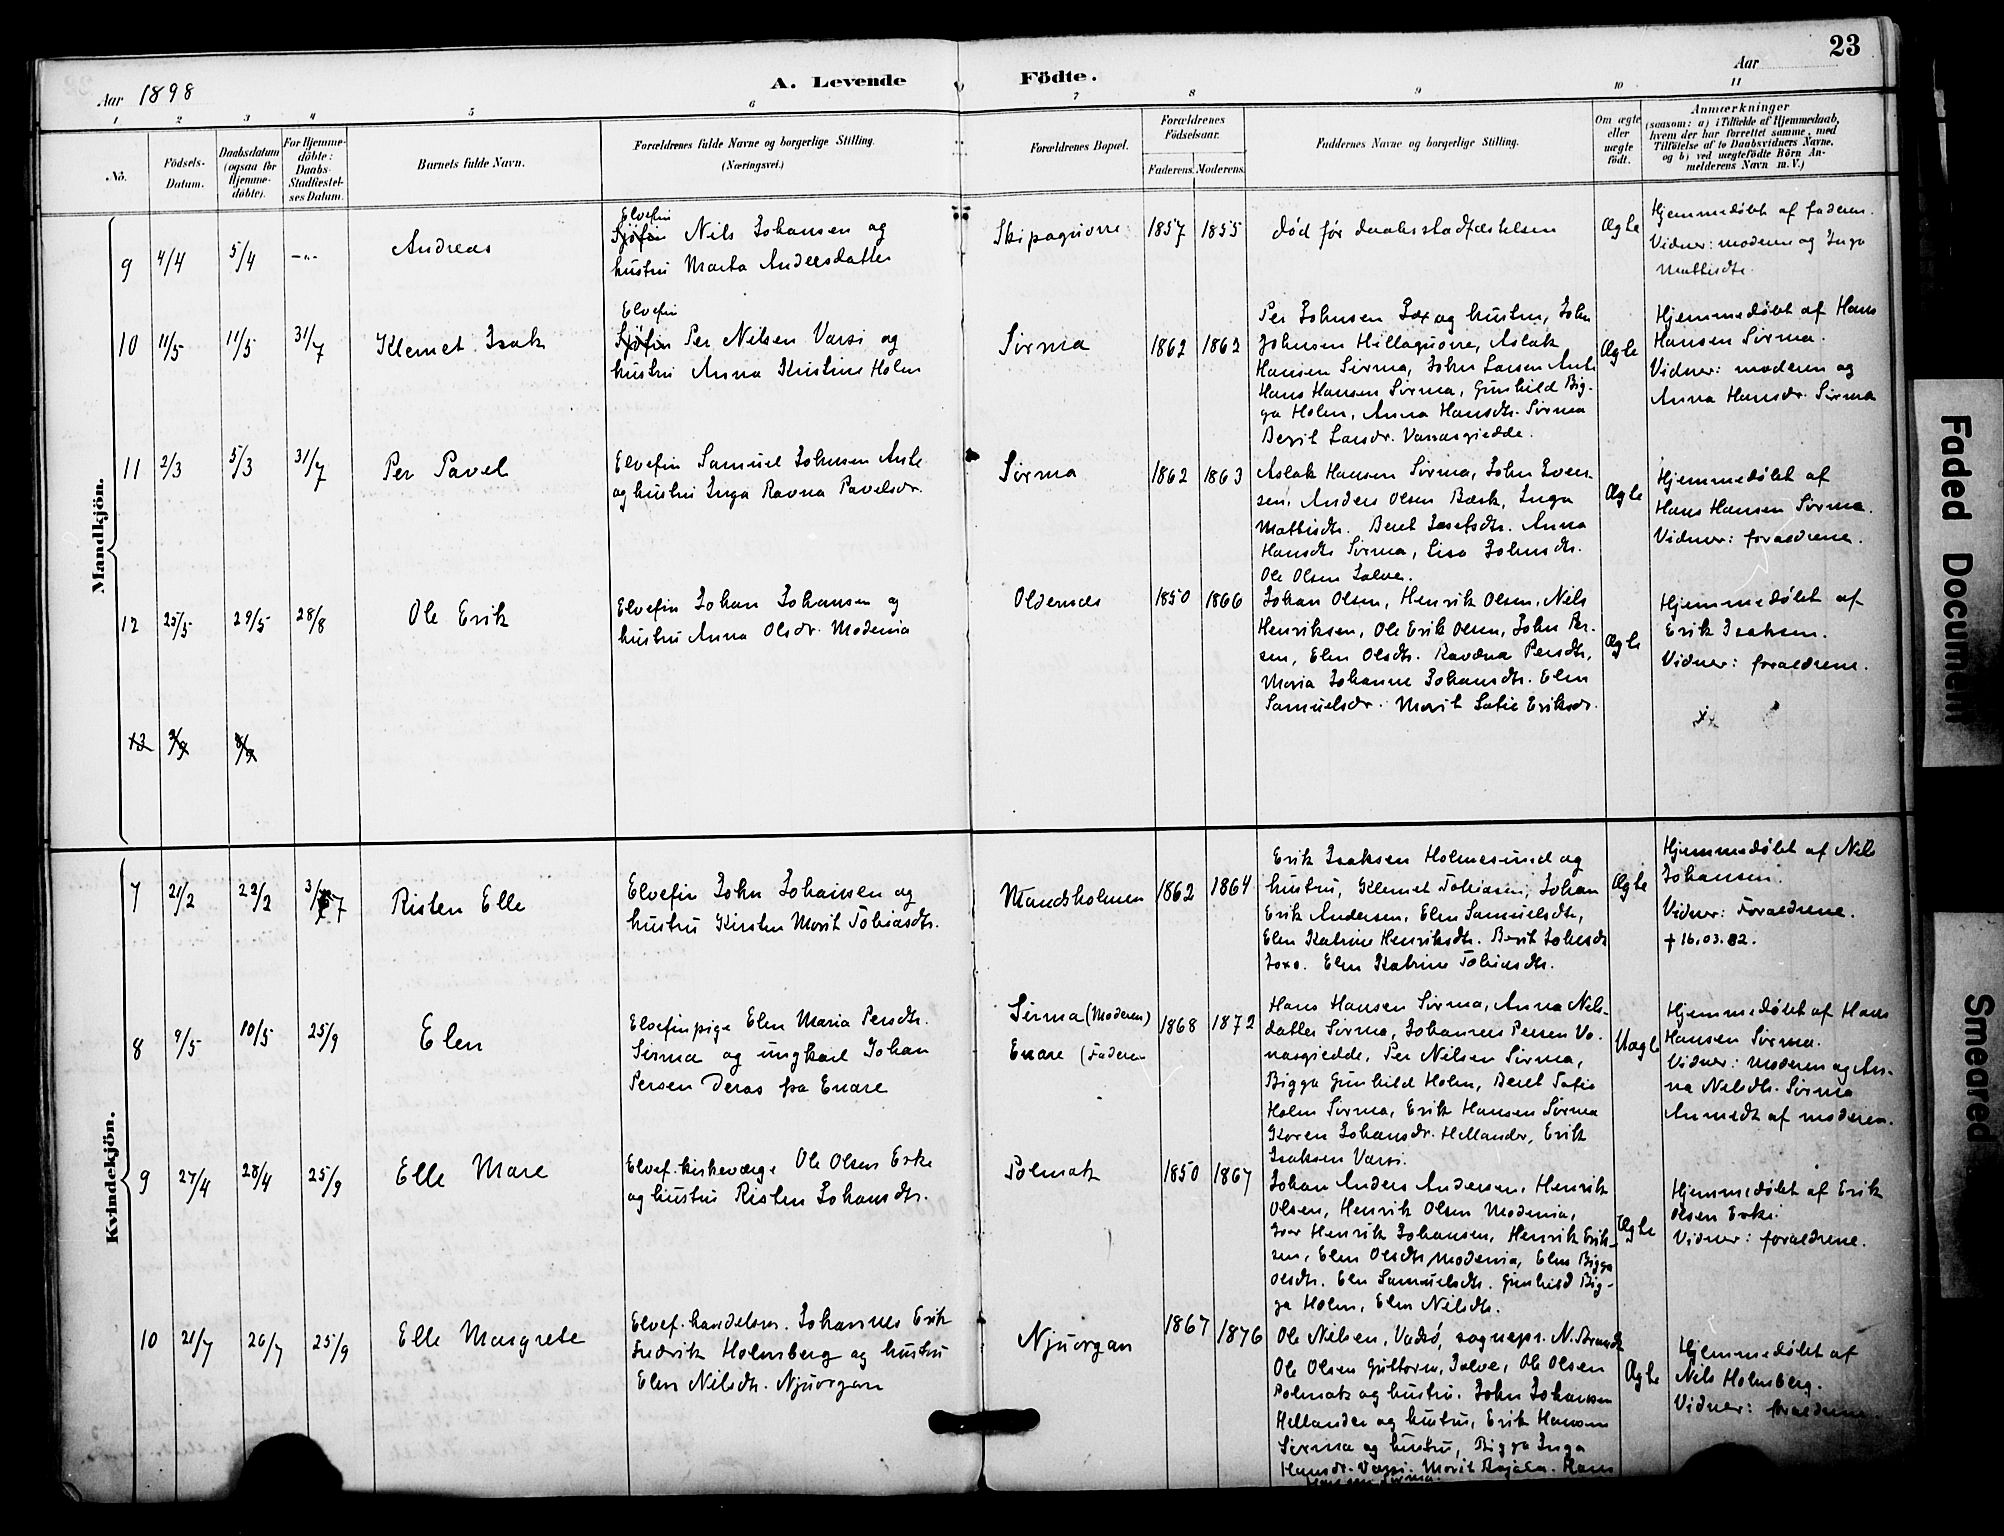 23
Aar 1898
A. Levende Födte.
Aar
1 2 3 4 5 6 7 8 9 10 11
No.
Födsels-Datum.
Daabsdatum (ogsaa for Hjemmedöbte).
For Hjemmedöbte: Daabs-Stadfæstelses Datum.
Barnets fulde Navn.
Forældrenes fulde Navne og borgerlige Stilling. (Næringsvei.)
Forældrenes Bopæl.
Forældrenes Födselsaar.
Faderens. Moderens.
Faddernes Navne og borgerlige Stilling.
Om ægte eller uægte födt.
Anmærkninger
(saasom: a) i Tilfælde af Hjemmedaab, hvem der har forrettet samme, med Tilföielse af to Daabsvidners Navne, og b) ved uægtefödte Börn Anmelderens Navn m. V.)
Mandkjön.
9 4/4 5/4 -"-
Andreas
Elvefin
Sjøfin Nils Johansen og
hustru Marta Andersdatter
Skipaguorre
1857 1855
Død før daabsstadfæstelsen
Ægte
Hjemmedøbt af faderen.
Vidner: moderen og Inga
Mattisdtr.
10 11/5 11/5 31/7
Klemet Isak
Elvefin
Sjøfin Per Nilsen Varsi og
hustru Anna Kristine Holm
Sirma
1862 1862
Per Johnsen Jox og hustru, John
Johnsen Hillaguorre, Aslak
Hansen Sirma, John Larsen Anti
Hans Hansen Sirma, Gunhild Big-
ga Holm, Anna Hansdtr. Sirma
Berit Larsdr. Vanasgiedde.
Ægte
Hjemmedøbt af Hans
Hansen Sirma.
Vidner: moderen og
Anna Hansdr. Sirma
11 2/3 5/3 31/7
Per Pavel
Elvefin Samuel Johnsen Anti
og hustru Inga Ravna Pavelsdr.
Sirma
1862 1863
Aslak Hansen Sirma, John Iver-
sen, Anders Olsen Bæsk, Inga
Mattisdtr. Beret Josefsdtr. Anna
Hansdtr Sirma, Lisa Johnsdtr.
Ole Olsen Jalve.
Ægte
Hjemmedøbt af
Hans Hansen Sirma.
Vidner: forældrene.
12 25/5 29/5 28/8
Ole Erik
Elvefin Johan Johansen og
hustru Anna Olsdr. Modenia
Oldernæs
1850 1866
Johan Olsen, Henrik Olsen, Nils
Henriksen, Ole Erik Olsen, John Per-
sen, Elen Olsdtr. Ravdna Persdtr,
Maria Johanne Johansdtr. Elen
Samuelsdr. Marit Sofie Eriksdr.
Ægte
Hjemmedøbt af
Erik Isaksen.
Vidner: forældrene.
Kvindekjön.
7 21/2 22/2 31/7
Risten Elle
Elvefin John Johansen og
hustru Kirsten Marit Tobiasdtr.
Mandsholmen
1862 1864
Erik Isaksen Holmesund og
hustru, Klemet Tobiasen, Johan
Erik Andersen, Elen Samuelsdtr,
Elen Katrine Henriksdtr. Berit Johnsdtr
Joxo. Elen Katrine Tobiasdtr.
Ægte
Hjemmedøbt af Nils
Johansen.
Vidner: Forældrene.
† 16.03.82.
8 9/5 10/5 25/9
Elen
Elvefinpige Elen Maria Persdtr.
Sirma og ungkarl Johan
Persen Deras fra Enare
Sirma (Moderen)
Enare (Faderen
1868 1872
Hans Hansen Sirma, Anna Nils-
datter Sirma, Johannes Persen Va-
nasgiedde, Per Nilsen Sirma,
Bigga Gunhild Holm, Beret Sofie
Holm Sirma, Erik Hansen Sirma
Karen Johansdr. Hellander, Erik
Isaksen Varsi.
Uægte
Hjemmedøbt af Hans
Hansen Sirma.
Vidner: Moderen og An-
na Nilsdtr. Sirma
Anmeldt af moderen.
9 27/4 28/4 25/9
Elle Mare
Elvef. kirkeværge Ole Olsen Erke
og hustru Risten Johansdtr.
Polmak
1850 1867
Johan Anders Andersen, Henrik
Olsen, Henrik Olsen Modenia,
Iver Henrik Johansen, Henrik Erik-
sen, Elen Olsdtr Modenia, Elen Bigga
Olsdtr. Elen Samuelsdtr. Gunhild Big-
ga Holm, Elen Nilsdtr.
Ægte
Hjemmedøbt af Erik
Olsen Erke.
Vidner: forældrene.
10 21/7 26/7 25/9
Elle Margrete
Elvef. handelsm. Johannes Erik
Fredrik Holmberg og hustru
Elen Nilsdtr. Njuorgan
Njuorgan
1867 1876
Ole Nilsen, Vadsø, sognepr. N. Brandt
Ole Olsen Guttorm, Jalve, Ole Olsen
Polmak og hustru. John Johansen
Hellander og hustru, Erik Hansen
Sirma og hustru, Bigga Inga
Hansdr. Varsi. Marit Rajala. Hans
Hansen Sirma.
Ægte
Hjemmedøbt af
Nils Holmberg.
Vidner: forældrene
Faded Document
Smeared